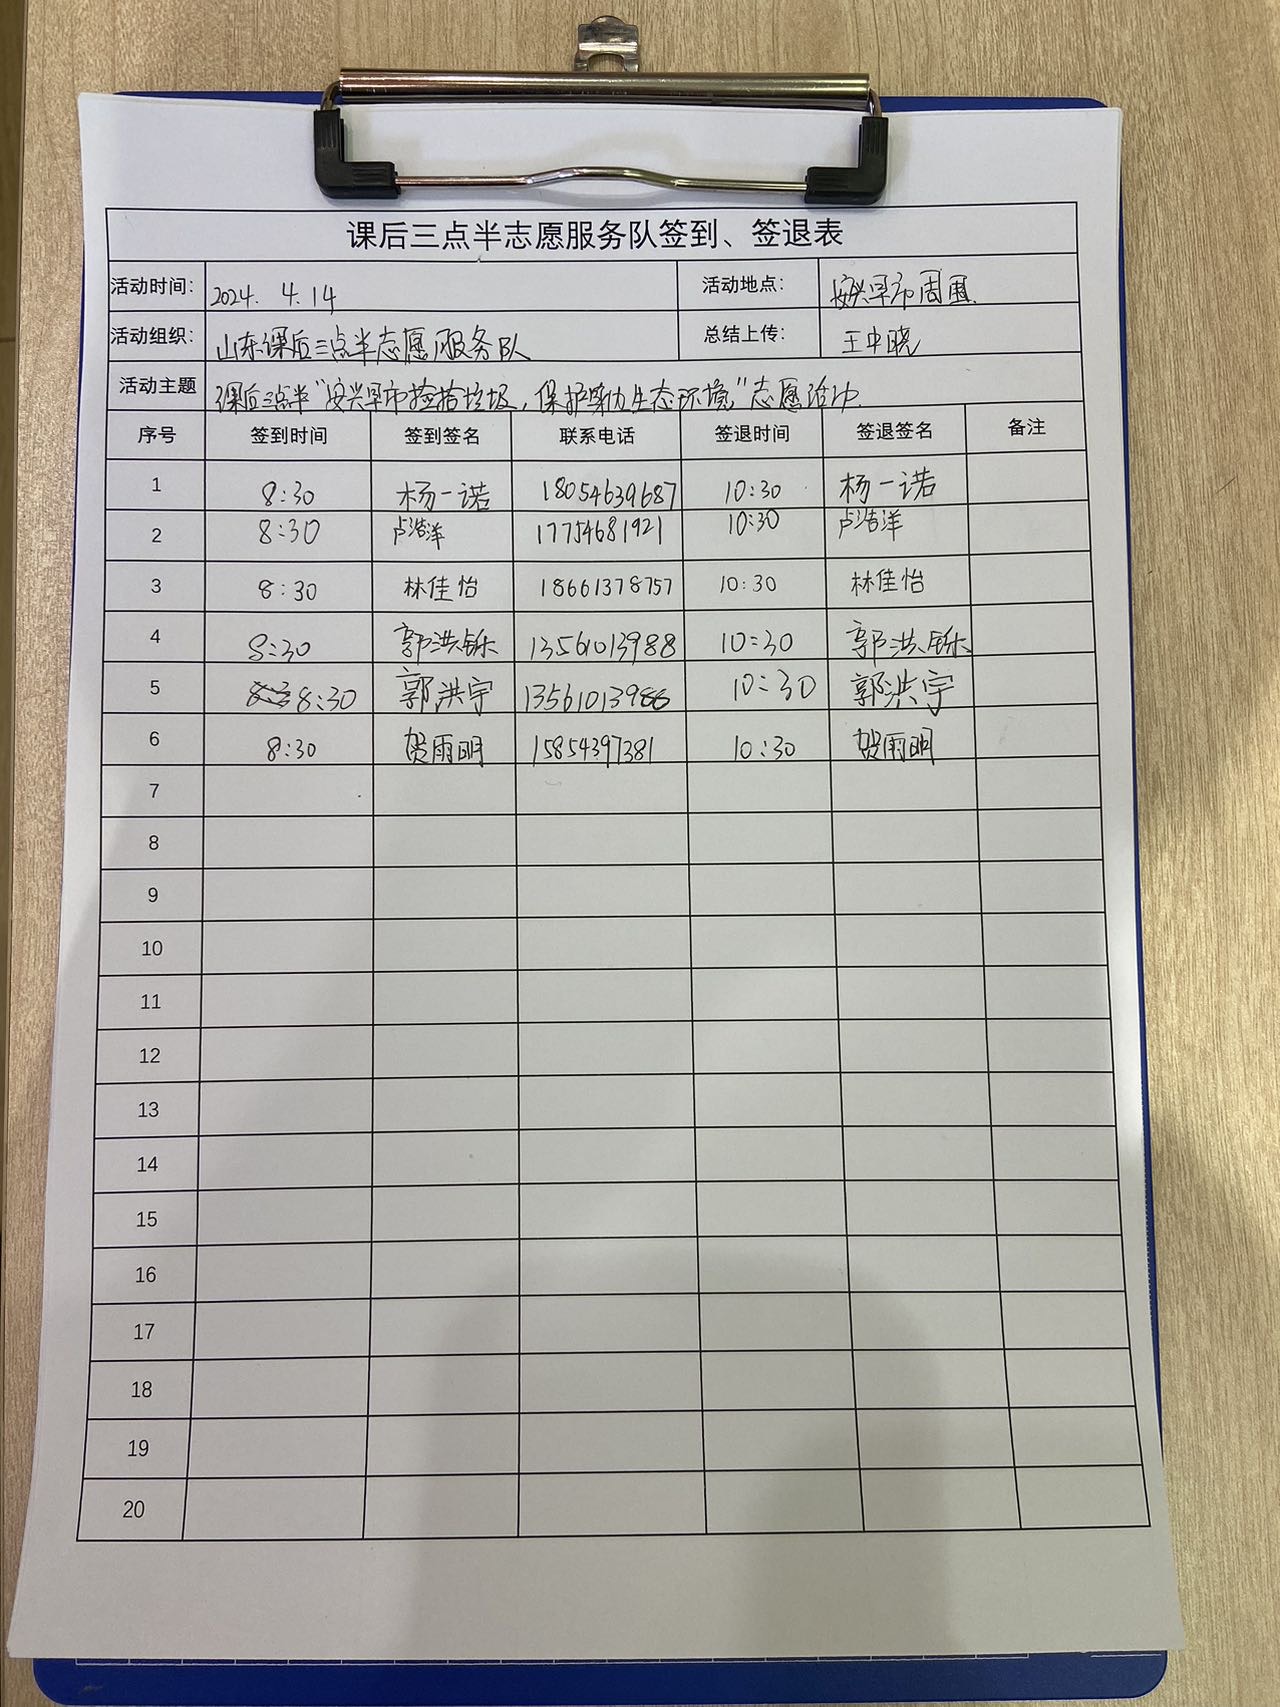 课后三点半志愿服务队签到、签退表
活动时间： 2024. 4. 14 活动地点： 安兴早市周围.
活动组织： 山东课后三点半志愿服务队 总结上传： 王中晓
活动主题 课后三点半“安兴早市捡拾垃圾，保护身边生态环境”志愿活动.
序号 签到时间 签到签名 联系电话 签退时间 签退签名 备注
1 8:30 杨一诺 18054639687 10:30 杨一诺
2 8:30 卢浩洋 17754681921 10:30 卢浩洋
3 8:30 林佳怡 18661378757 10:30 林佳怡
4 8:30 郭洪铄 13561013988 10:30 郭洪铄
5 8:30 郭洪宇 10:30 郭洪宇
6 8:30 贺雨明 15854397381 10:30 贺雨明
7
8
9
10
11
12
13
14
15
16
17
18
19
20